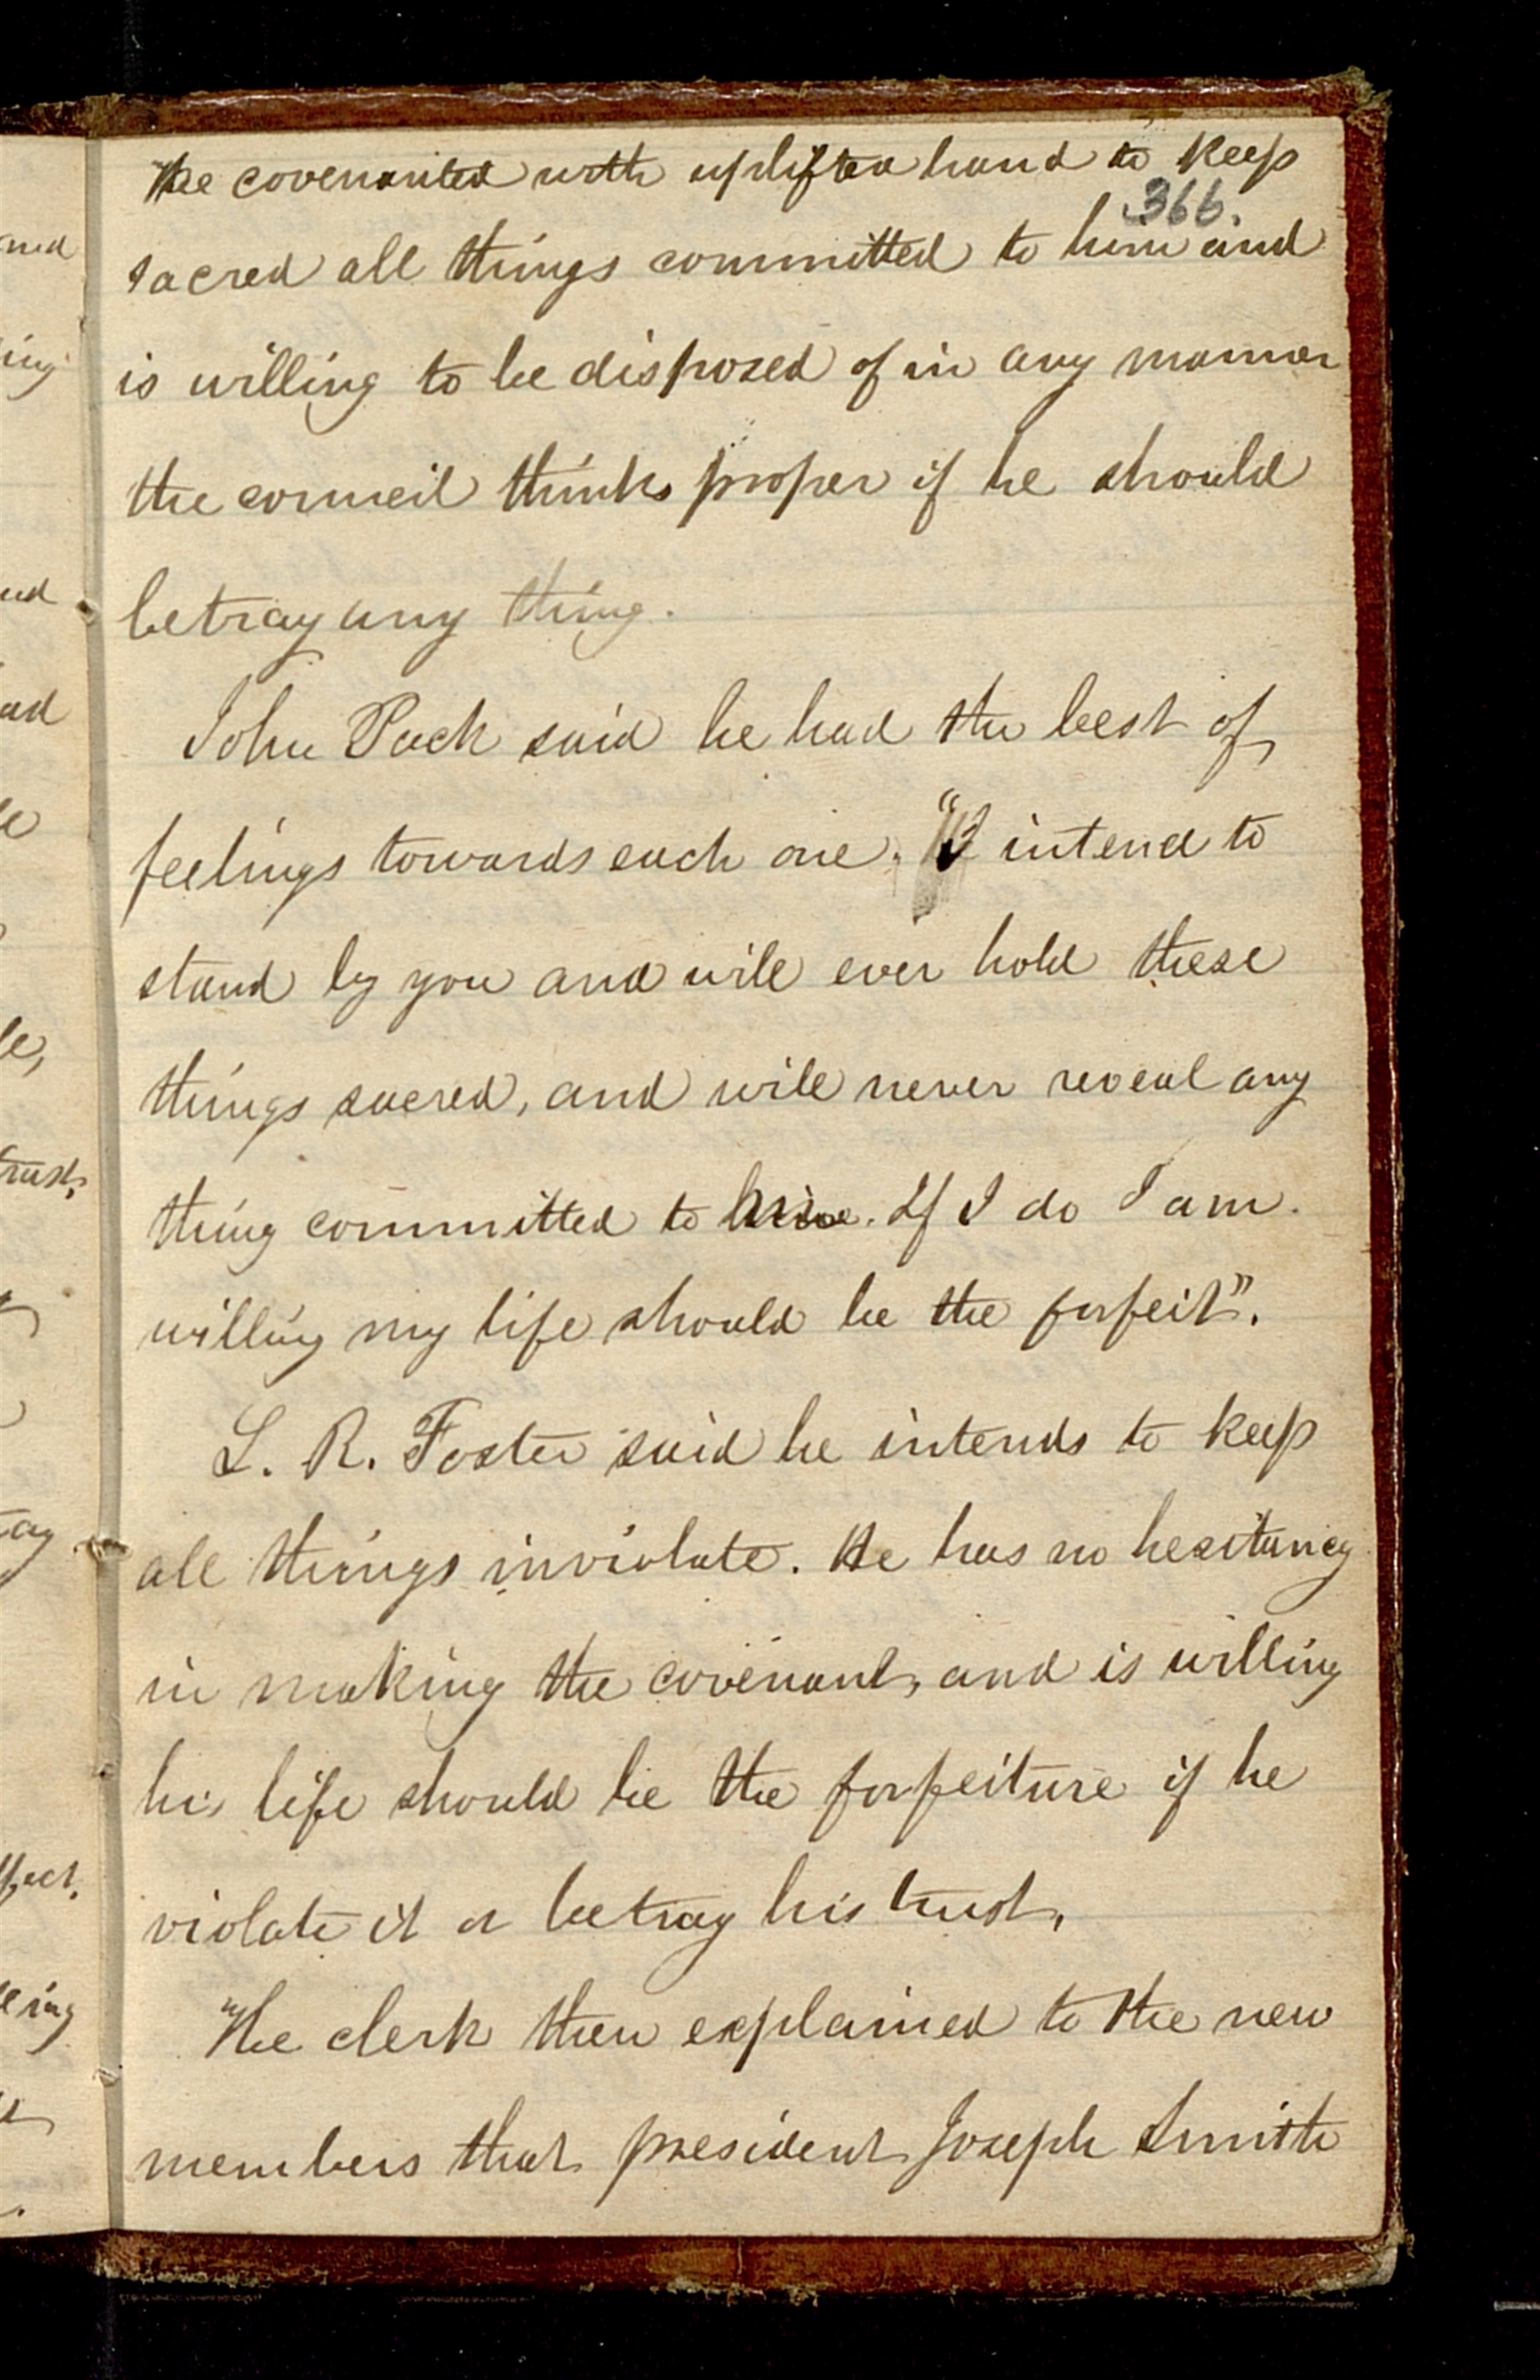 He covenanted with uplifted hand to keep
366.
sacred all things committed to him and
is willing to be disposed of in any manner
the council thinks proper if he should
betray any thing.
John Pack said he had the best of
feelings towards each one. "I intend to
stand by you and will ever hold these
things sacred, and will never reveal any
thing committed to me. If I do I am
willing my life should be the forfeit".
L. R. Foster said he intends to keep
all things inviolate. He has no hesitancy
in making the covenant, and is willing
his life should be the forfeiture if he
violate it or betray his trust.
The clerk then explained to the new
members that president Joseph Smith